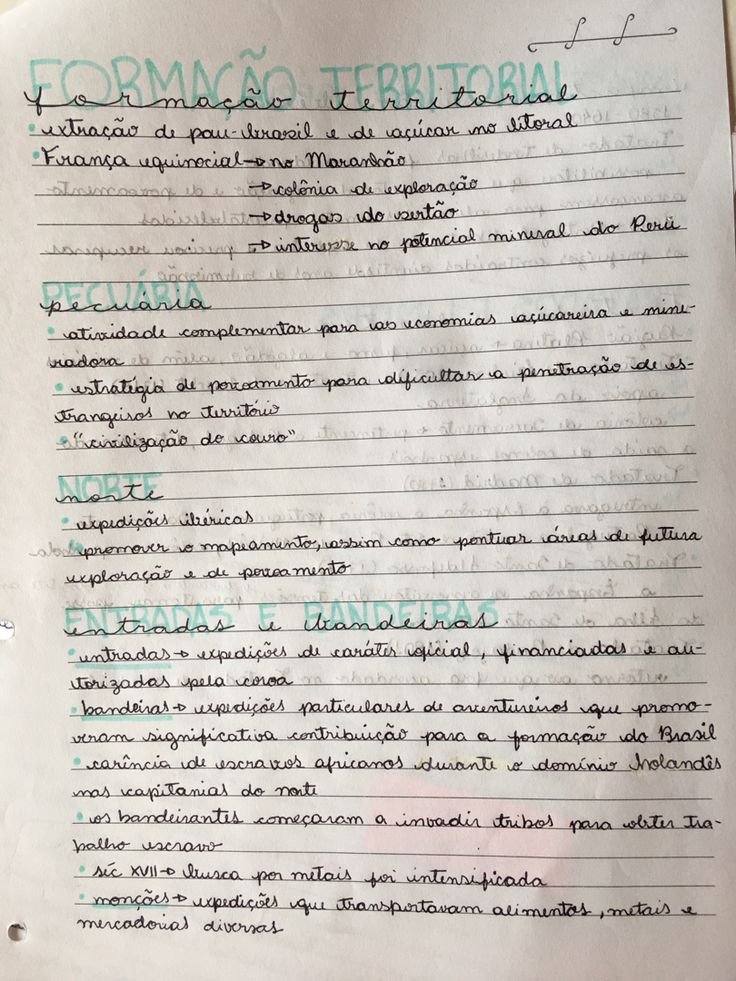 FORMAÇÃO TERRITORIAL
formação territorial
• extração de pau-brasil e de açúcar no litoral
• França equinocial → no Maranhão
→ colônia de exploração
→ drogas do sertão
→ interesse no potencial mineral do Peru
PECUÁRIA
pecuária
• atividade complementar para as economias açúcareira e mine-
radora
• estratégia de povoamento para dificultar a penetração de es-
trangeiros no território
• "civilização do couro"
NORTE
norte
• expedições ibéricas
• promover o mapeamento, assim como pontuar áreas de futura
exploração e de povoamento
ENTRADAS E BANDEIRAS
entradas e bandeiras
• entradas → expedições de caráter oficial, financiadas e au-
torizadas pela coroa
• bandeiras → expedições particulares de aventureiros que promo-
veram significativa contribuição para a formação do Brasil
• carência de escravos africanos durante o domínio holandês
nas capitanias do norte
• os bandeirantes começaram a invadir tribos para obter tra-
balho escravo
• séc XVII → busca por metais foi intensificada
• monções → expedições que transportavam alimentos, metais e
mercadorias diversas